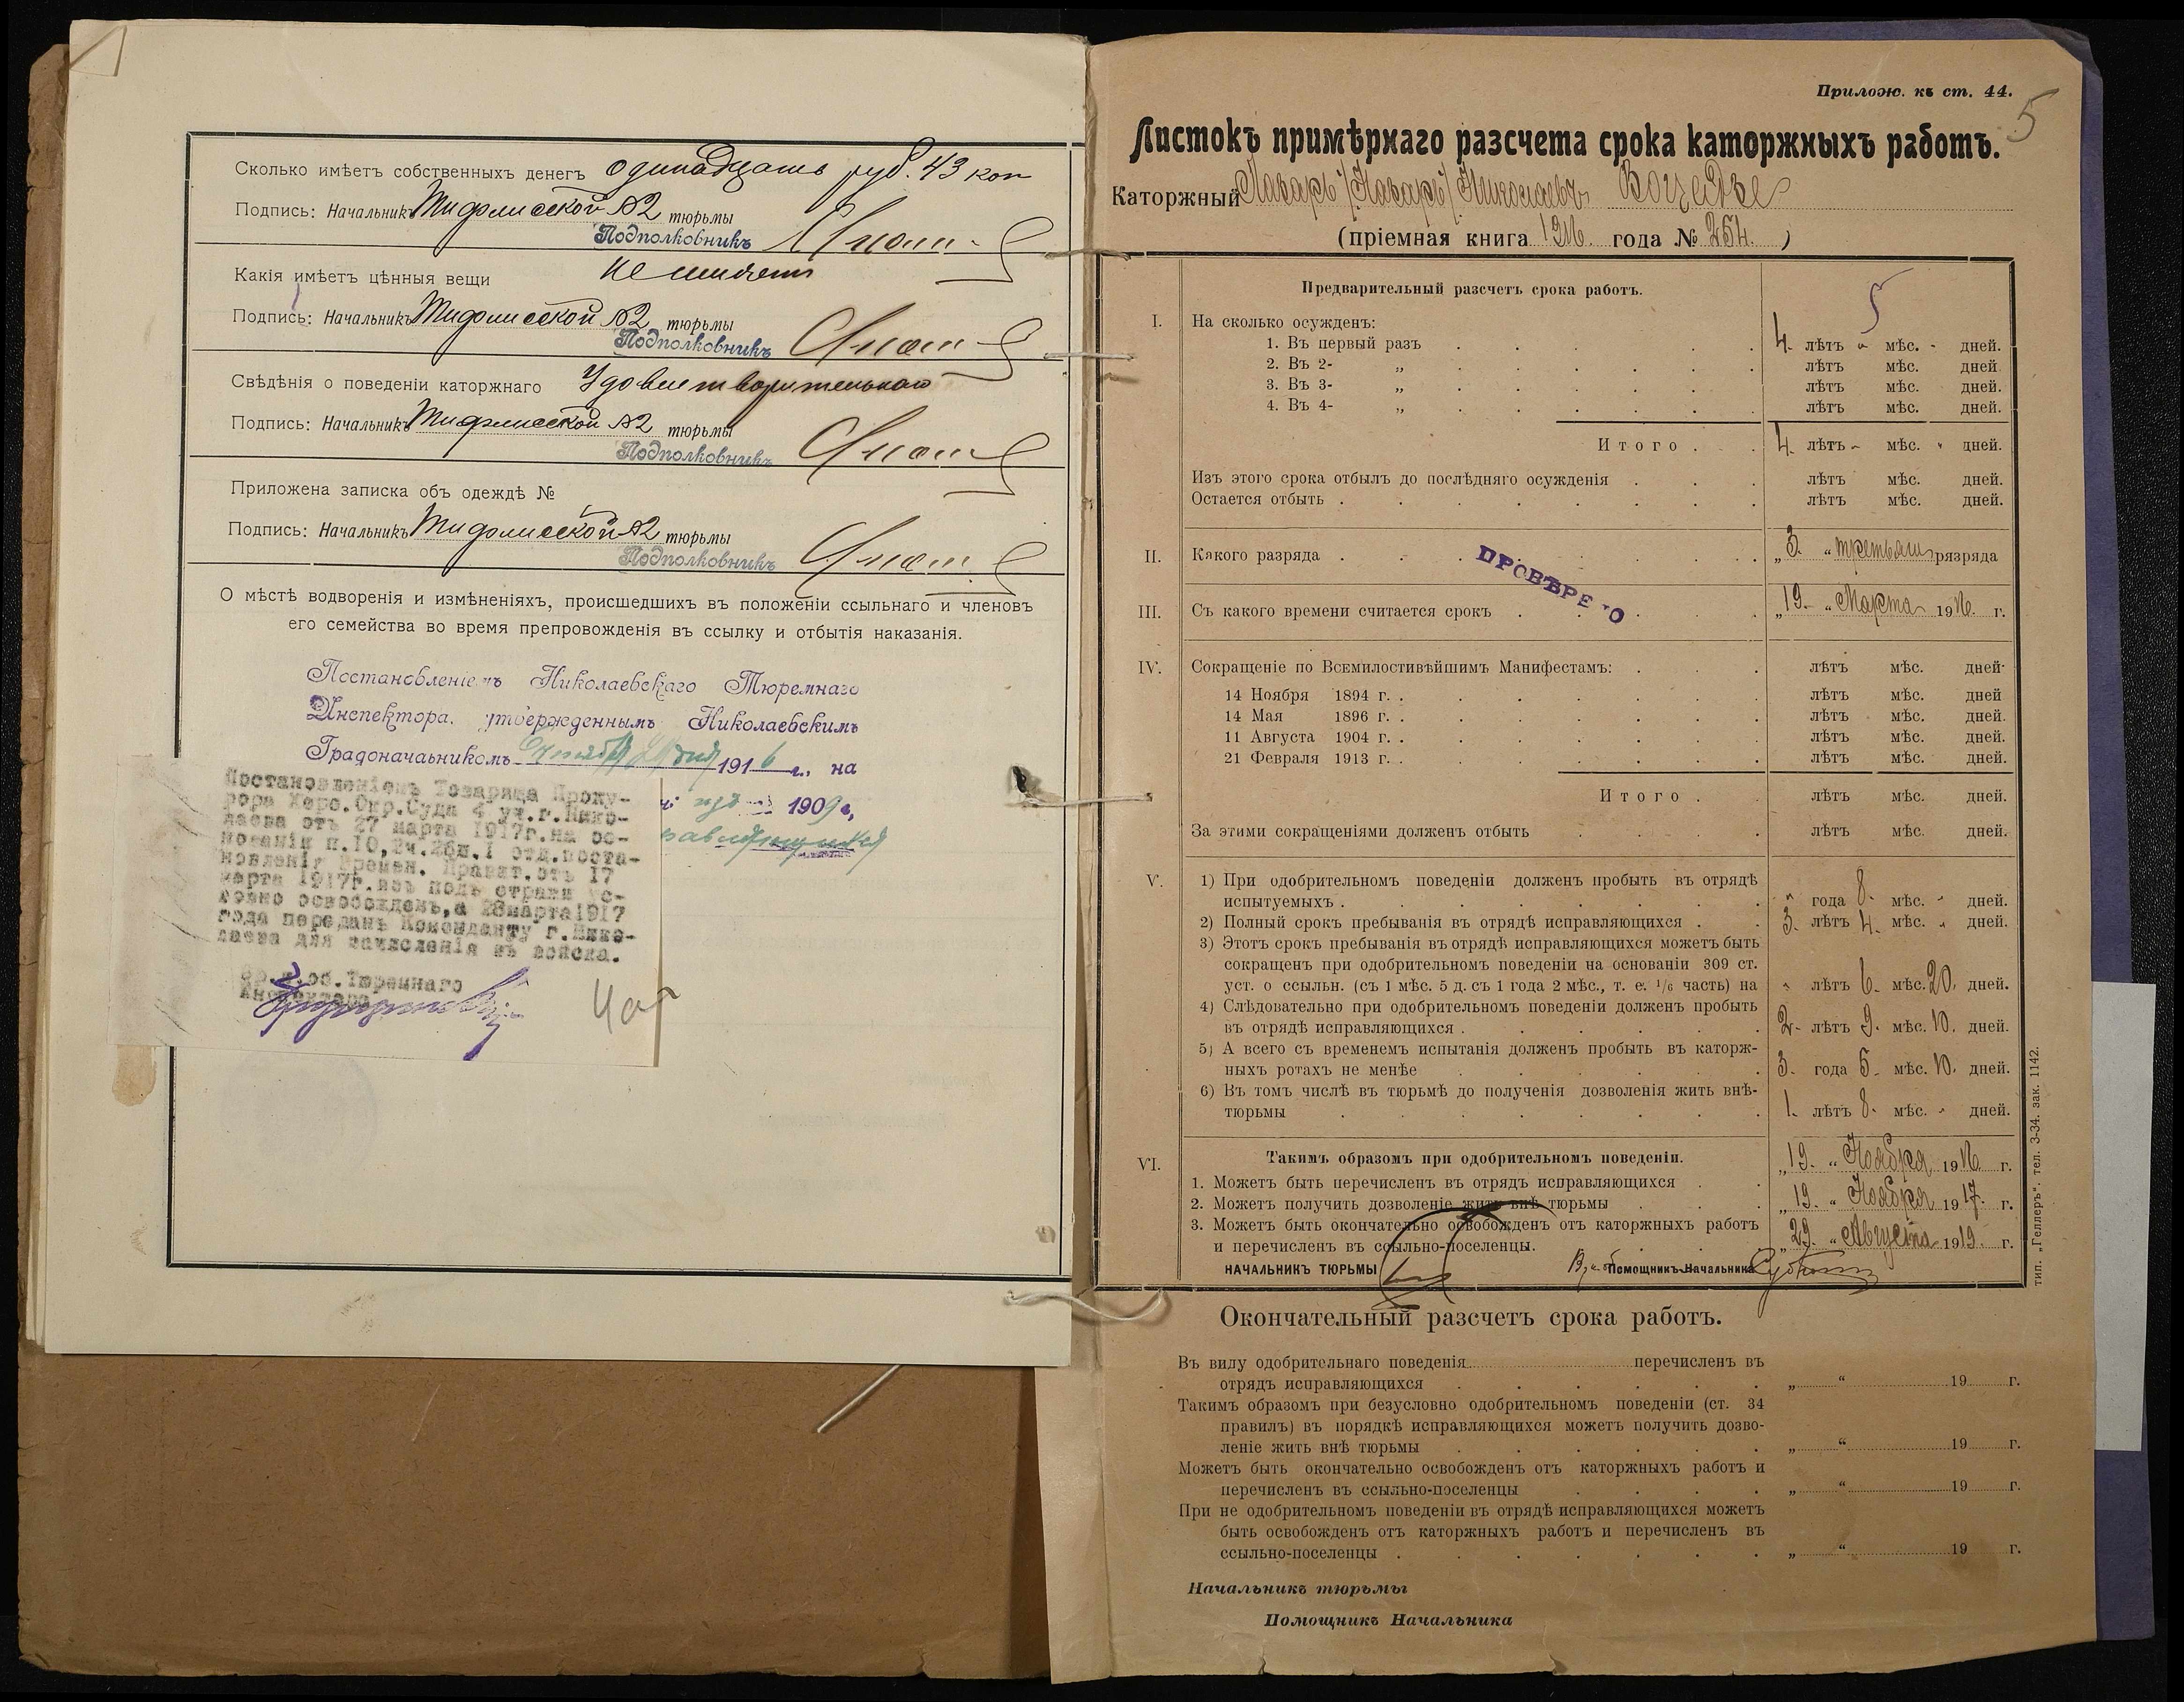 Сколько имѣетъ собственныхъ денегъ одинадцать руб. 43 коп
Подпись: Начальникъ Тифлисской №2 тюрьмы
Подполковникъ
Какія имѣетъ цѣнныя вещи не имѣетъ
Подпись: Начальникъ Тифлисской №2 тюрьмы
Подполковникъ
Свѣдѣнія о поведеніи каторжнаго Удовлетворительнаго
Подпись: Начальникъ Тифлисской №2 тюрьмы
Подполковникъ
Приложена записка объ одеждѣ №
Подпись: Начальникъ Тифлисской №2 тюрьмы
Подполковникъ
О мѣстѣ водворенія и измѣненіяхъ, происшедшихъ въ положеніи ссыльнаго и членовъ
его семейства во время препровожденія въ ссылку и отбытія наказанія.
Постановленіемъ Николаевскаго Тюремнаго
Инспектора, утвержденнымъ Николаевскимъ
Градоначаьникомъ 1916 г., на
1909 г,
Постановленіемъ Товарища Проку-
рора Херс.Окр.Суда 4 уч.г.Нико-
лаева отъ 27 марта 1917г.на ос-
нованіи п.10,2ч.26ш.I отд.поста-
новленія Времен. Правит.отъ 17
марта 1917г.изъ подъ стражи ус-
ловно освобожденъ,а 28марта1917
года переданъ Коменданту г.Нико-
лаева для зачисленія въ войска.
Вр.и.об.Тюремнаго
Инспектора
Прилож. къ ст. 44.
5
Листокъ примѣрнаго разсчета срока каторжныхъ работъ.
Каторжный Макаръ /Назаръ/ Николаевъ
(пріемная книга 1916 года № 254.)
Предварительный разсчетъ срока работъ.
5
I. На сколько осужденъ:
1. Въ первый разъ 4. лѣтъ „ мѣс. „ дней.
2. Въ 2- „ лѣтъ мѣс. дней.
3. Въ 3- „ лѣтъ мѣс. дней.
4. Въ 4- „ лѣтъ мѣс. дней.
Итого. 4. лѣтъ „ мѣс. „ дней.
Изъ этого срока отбылъ до послѣдняго осужденія лѣтъ мѣс. дней.
Остается отбыть лѣтъ мѣс. дней.
II. Какого разряда „3. “ третьяго рязряда
ПРОВѢРЕНО
III. Съ какого времени считается срокъ „19. “ Марта 1916. г.
IV. Сокращеніе по Всемилостивѣйшимъ Манифестамъ: лѣтъ мѣс. дней.
14 Ноября 1894 г. лѣтъ мѣс. дней
14 Мая 1896 г. лѣтъ мѣс. дней.
11 Августа 1904 г. лѣтъ мѣс. дней.
21 Февраля 1913 г. лѣтъ мѣс. дней.
Итого. лѣтъ мѣс. дней.
За этими сокращеніями долженъ отбыть лѣтъ мѣс. дней.
V. 1) При одобрительномъ поведеніи долженъ пробыть въ отрядѣ
испытуемыхъ. „ года 8. мѣс. „ дней.
2) Полный срокъ пребыванія въ отрядѣ исправляющихся 3. лѣтъ 4. мѣс. „ дней.
3) Этотъ срокъ пребыванія въ отрядѣ исправляющихся можетъ быть
сокращенъ при одобрительномъ поведеніи на основаніи 309 ст.
уст. о ссыльн. (съ 1 мѣс. 5 д. съ 1 года 2 мѣс., т. е. 1/6 часть) на „ лѣтъ 6. мѣс. 20. дней.
4) Слѣдовательно при одобрительномъ поведеніи долженъ пробыть
въ отрядѣ исправляющихся. 2. лѣтъ 9. мѣс. 10. дней.
5) А всего съ временемъ испытанія долженъ пробыть въ каторж-
ныхъ ротахъ не менѣе 3. года 5. мѣс. 10. дней.
6) Въ томъ числѣ въ тюрьмѣ до полученія дозволенія жить внѣ-
тюрьмы 1. лѣтъ 8. мѣс. „ дней.
VI. Такимъ образомъ при одобрительномъ поведеніи.
1. Можетъ быть перечисленъ въ отрядъ исправляющихся „19. “ Ноября 1916 г.
2. Можетъ получить дозволеніе жить внѣ тюрьмы „19. “ Ноября 1917. г.
3. Можетъ быть окончательно освобожденъ отъ каторжныхъ работъ
и перечисленъ въ ссыльно-поселенцы. „29. “ Августа 1919. г.
НАЧАЛЬНИКЪ ТЮРЬМЫ Помощникъ Начальника
тип. „Геллеръ“. тел. 3-34. зак. 1142.
Окончательный разсчетъ срока работъ.
Въ виду одобрительнаго поведенія перечисленъ въ
отрядъ исправляющихся „ “ 19 г.
Такимъ образомъ при безусловно одобрительномъ поведеніи (ст. 34
правилъ) въ порядкѣ исправляющихся можетъ получить дозво-
леніе жить внѣ тюрьмы „ “ 19 г.
Можетъ быть окончательно освобожденъ отъ каторжныхъ работъ и
перечисленъ въ ссыльно-поселенцы „ “ 19 г.
При не одобрительномъ поведеніи въ отрядѣ исправляющихся можетъ
быть освобожденъ отъ каторжныхъ работъ и перечисленъ въ
ссыльно-поселенцы „ “ 19 г.
Начальникъ тюрьмы
Помощникъ Начальника